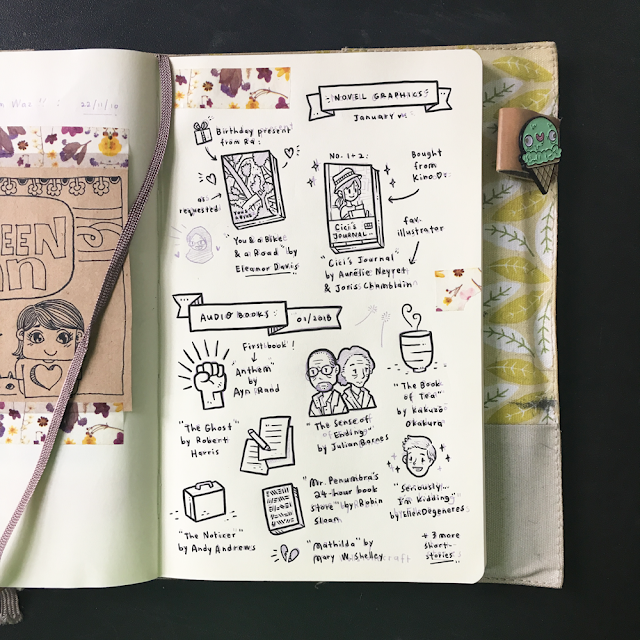 22/11/10
EEN
NOVEL GRAPHICS
January
Birthday present
from Ra:
as
requested
"You & a Bike
& a Road" by
Eleanor Davis
No. 1+2:
CICI'S
JOURNAL
Bought
from
Kino
fav.
illustrator
"Cici's Journal"
by Aurélie Neyret
& Joris Chamblain
AUDIO BOOKS
01/2018
First book!
"Anthem"
by
Ayn Rand
"The Ghost"
by Robert
Harris
"The Sense of
Ending"
by Julian Barnes
"The Book
of Tea"
by Kakuzo
Okakura
"The Noticer"
by Andy Andrews
"Mr. Penumbra's
24-hour book
store" by Robin
Sloan
"Seriously...
I'm Kidding"
by Ellen Degeneres
"Mathilda" by
Mary W. Shelley
+ 3 more
short
stories